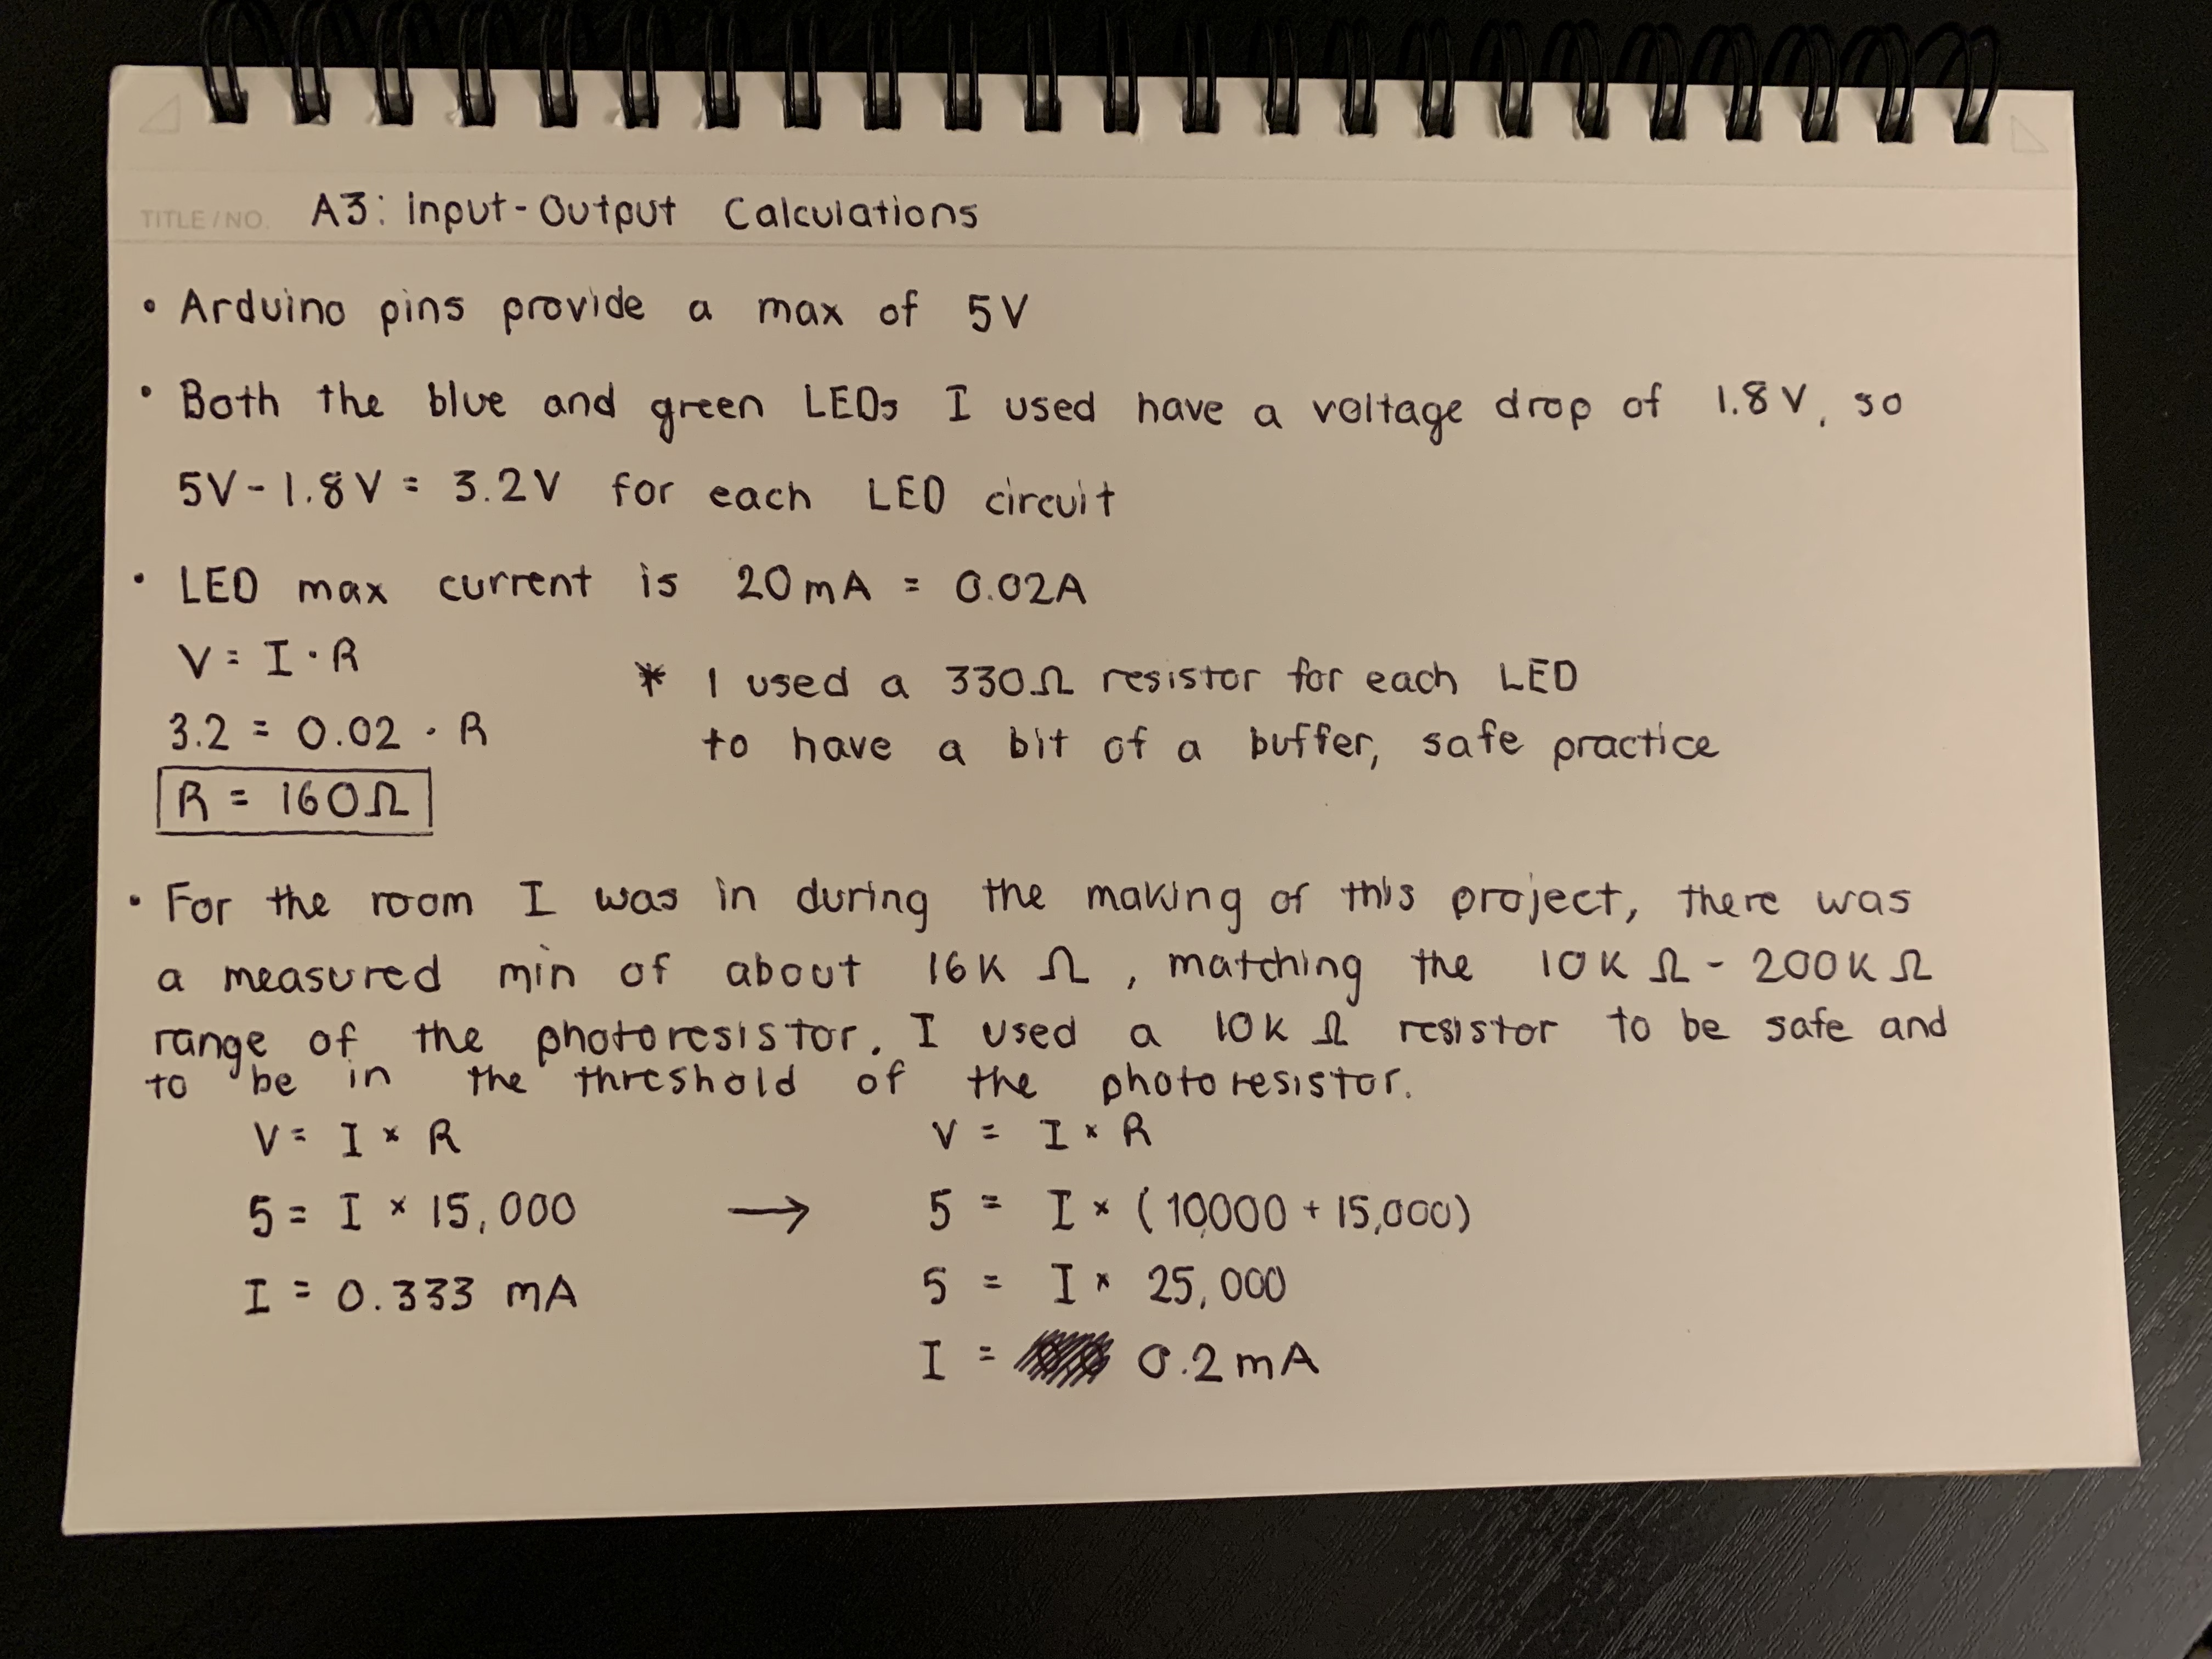 TITLE / NO. A3: Input-Output Calculations
• Arduino pins provide a max of 5V
• Both the blue and green LEDs I used have a voltage drop of 1.8V, so
5V - 1.8V = 3.2V for each LED circuit
• LED max current is 20mA = 0.02A
V = I · R
* I used a 330Ω resistor for each LED
3.2 = 0.02 · R
to have a bit of a buffer, safe practice
R = 160Ω
• For the room I was in during the making of this project, there was
a measured min of about 16K Ω, matching the 10K Ω - 200K Ω
range of the photoresistor. I used a 10K Ω resistor to be safe and
to be in the threshold of the photoresistor.
V = I × R
5 = I × 15,000 →
I = 0.333 mA
V = I × R
5 = I × (10,000 + 15,000)
5 = I × 25,000
I = 0.2mA